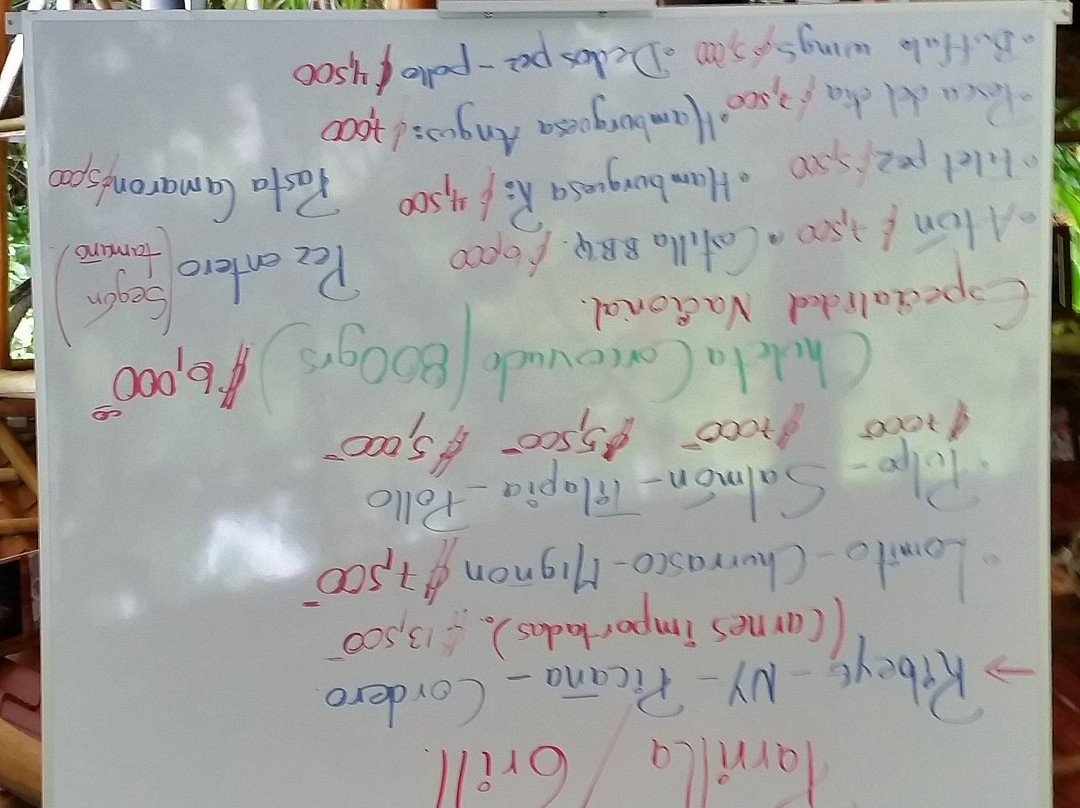 Parrilla / Grill.
→ Ribeye - NY - Picaña - Cordero.
(Carnes importadas). ₡13,500
• Lomito - Churrasco - Mignon ₡7,500
• Pulpo - Salmón - Tilapia - Pollo
₡7000 ₡7000 ₡5,500 ₡5,000
Chuleta Corcovado (800grs) ₡6,000
Especialidad Nacional.
• Atún ₡7,500 • Costilla BBQ. ₡6,000 Pez entero (Según tamaño)
• Filet pez ₡5,500 • Hamburguesa R: ₡4,500 Pasta Camaron ₡5,000
• Pesca del día ₡7,500 • Hamburguesa Angus: ₡7,000
• Buffalo wings ₡5,000 • Dedos pez - pollo ₡4,500